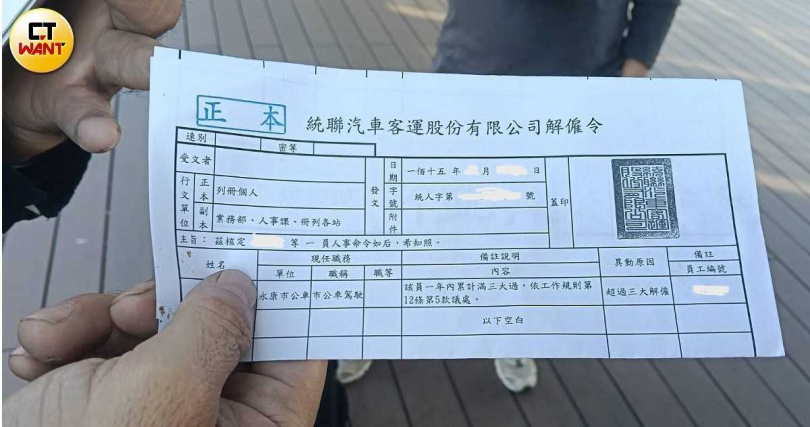 CT
WANT
正本
統聯汽車客運股份有限公司解僱令
速別
密等
受文者
日期
一佰十五年 月 日
行文單位
正本
列冊個人
發文
字號
統人字第 號
蓋印
副本
業務部、人事課、冊列各站
附件
主旨：茲核定 等一員人事命令如后，希知照。
姓名
現任職務
備註說明
異動原因
備註
單位
職稱
職等
內容
員工編號
永康市公車
市公車駕駛
該員一年內累計滿三大過，依工作規則第
12條第5款議處。
超過三大解僱
以下空白